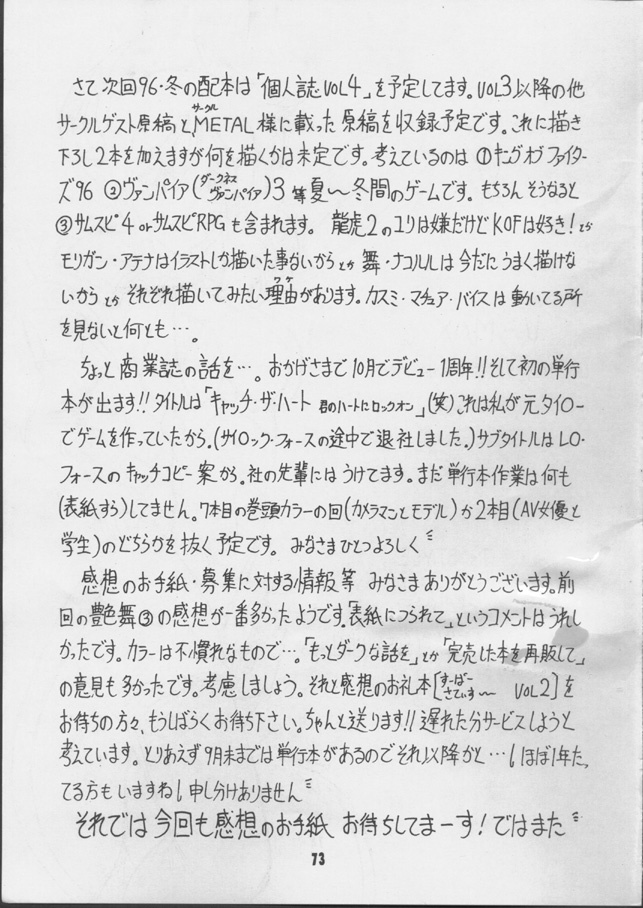 さて次回96・冬の配本は「個人誌VOL4」を予定してます。VOL3以降の他
サークルゲスト原稿と、METAL様に載った原稿を収録予定です。これに描き
下ろし2本を加えますが何を描くかは未定です。考えているのは①キングオブファイター
ズ96 ②ヴァンパイア(ダークネス ヴァンパイア)3等夏〜冬間のゲームです。もちろんそうなると
③サムスピ4orサムスピRPGも含まれます。 龍虎2のユリは嫌だけどKOFは好き!とか
モリガン・アテナはイラストしか描いた事ないからとか舞・ナコルルは今だにうまく描けな
いからとかそれぞれ描いてみたい理由があります。カスミ・マチュア・バイスは動いてる所
を見ないと何とも…。
ちょっと商業誌の話を…。おかげさまで10月でデビュー1周年!!そして初の単行
本が出ます!!タイトルは「キャッチ・ザ・ハート 君のハートにロックオン」(笑)これは私が元タイトー
でゲームを作っていたから。(サイロック・フォースの途中で退社しました。)サブタイトルはLO・
フォースのキャッチコピー案から。社の先輩にはうけてます。まだ単行本作業は何も
(表紙すら)してません。7本目の巻頭カラーの回(カメラマンとモデル)か2本目(AV女優と
学生)のどちらかを抜く予定です。 みなさまひとつよろしく
感想のお手紙・募集に対する情報等 みなさまありがとうございます。前
回の艶色舞③の感想が一番多かったようです。「表紙につられて」というコメントはうれし
かったです。カラーは不慣れなもので…。「もっとダークな話を」とか「完売した本を再販して」
の意見も多かったです。考慮しましょう。それと感想のお礼本[すーぱー さてぃすふぁ〜 VOL2]を
お待ちの方々、もうしばらくお待ち下さい。ちゃんと送ります!!遅れた分サービスしようと
考えています。とりあえず9月末までは単行本があるのでそれ以降かと…(ほぼ1年た
てる方もいますね)申し分けありません
それでは今回も感想のお手紙 お待ちしてまーす!ではまた
73